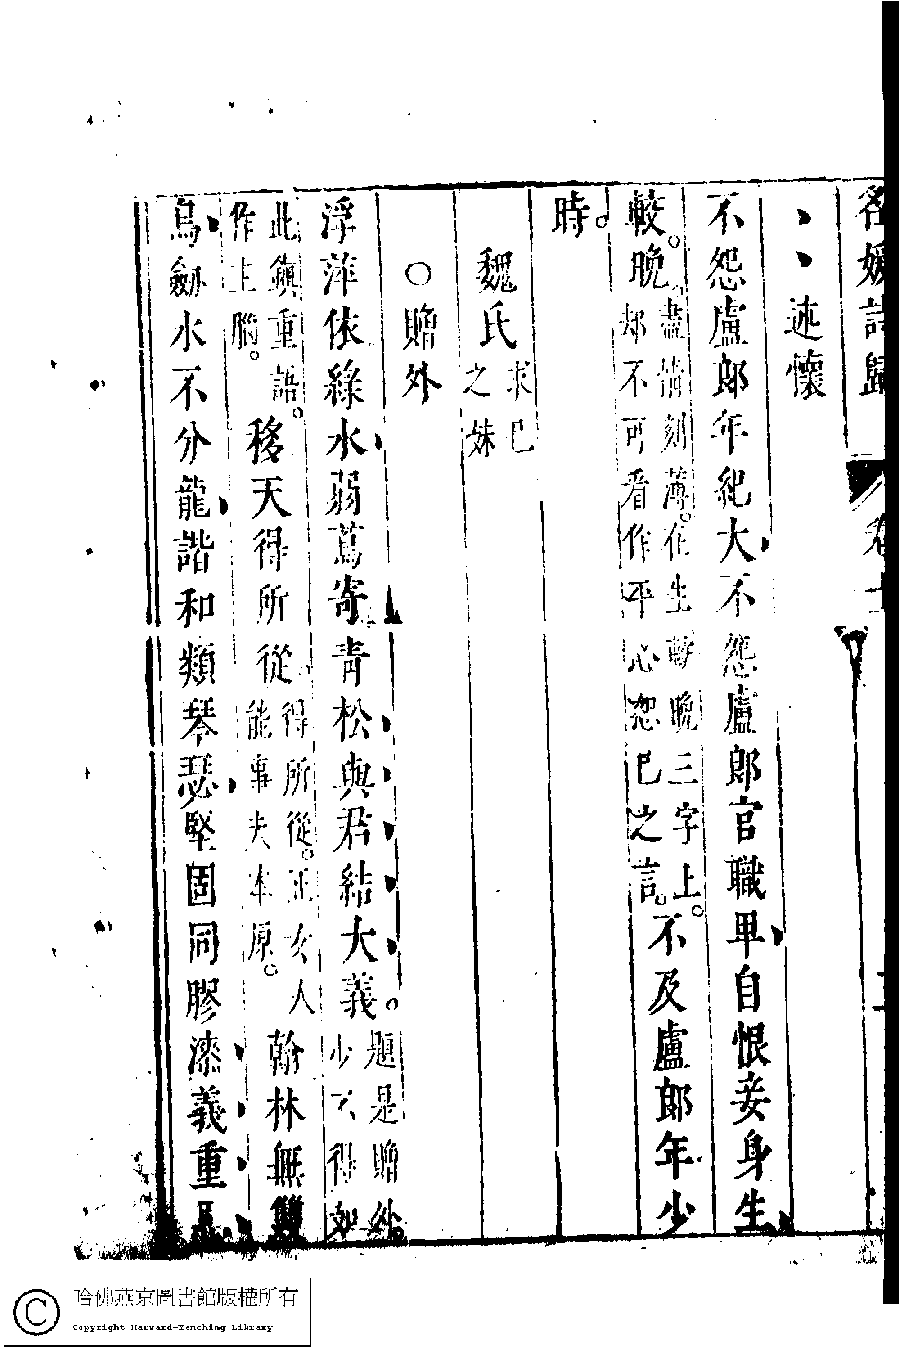 名媛詩歸 卷十
、、述懷
不怨盧郎年紀大不怨盧郎官職卑自恨妾身生
較晚。盡情刻薄。在生較晚三字上。却不可看作平心恕已之言。不及盧郎年少
時。
魏氏求已之妹
○贈外
浮萍依綠水弱蔦寄青松與君結大義。題是贈外少不得如
此鎮重語。作主腦。移天得所從得所從。正女人能事夫本原。翰林無雙
鳥劒水不分龍諧和類琴瑟堅固同膠漆義重
哈佛燕京圖書館版權所有
Copyright Harvard-Yenching Library